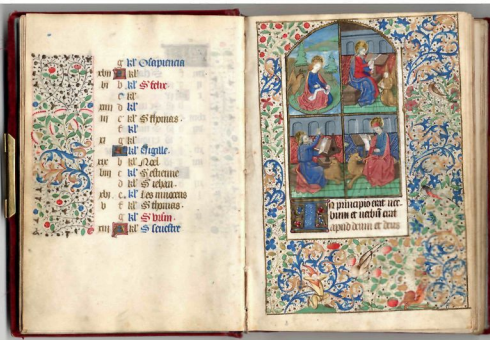 g kl Osapiencia
xviii A kl
vi b kl S fetre.
c kl
xiiii d kl
iii e kl S thomas.
f kl
xi g kl
A kl Vigille.
xix b kl Noel
viii c kl S estienne
d kl S iehan.
xvi e kl les innocens
v f kl S thomas.
g kl
xiii A kl S sevestre
In principio erat ver
bum et verbum erat
apud deum et deus